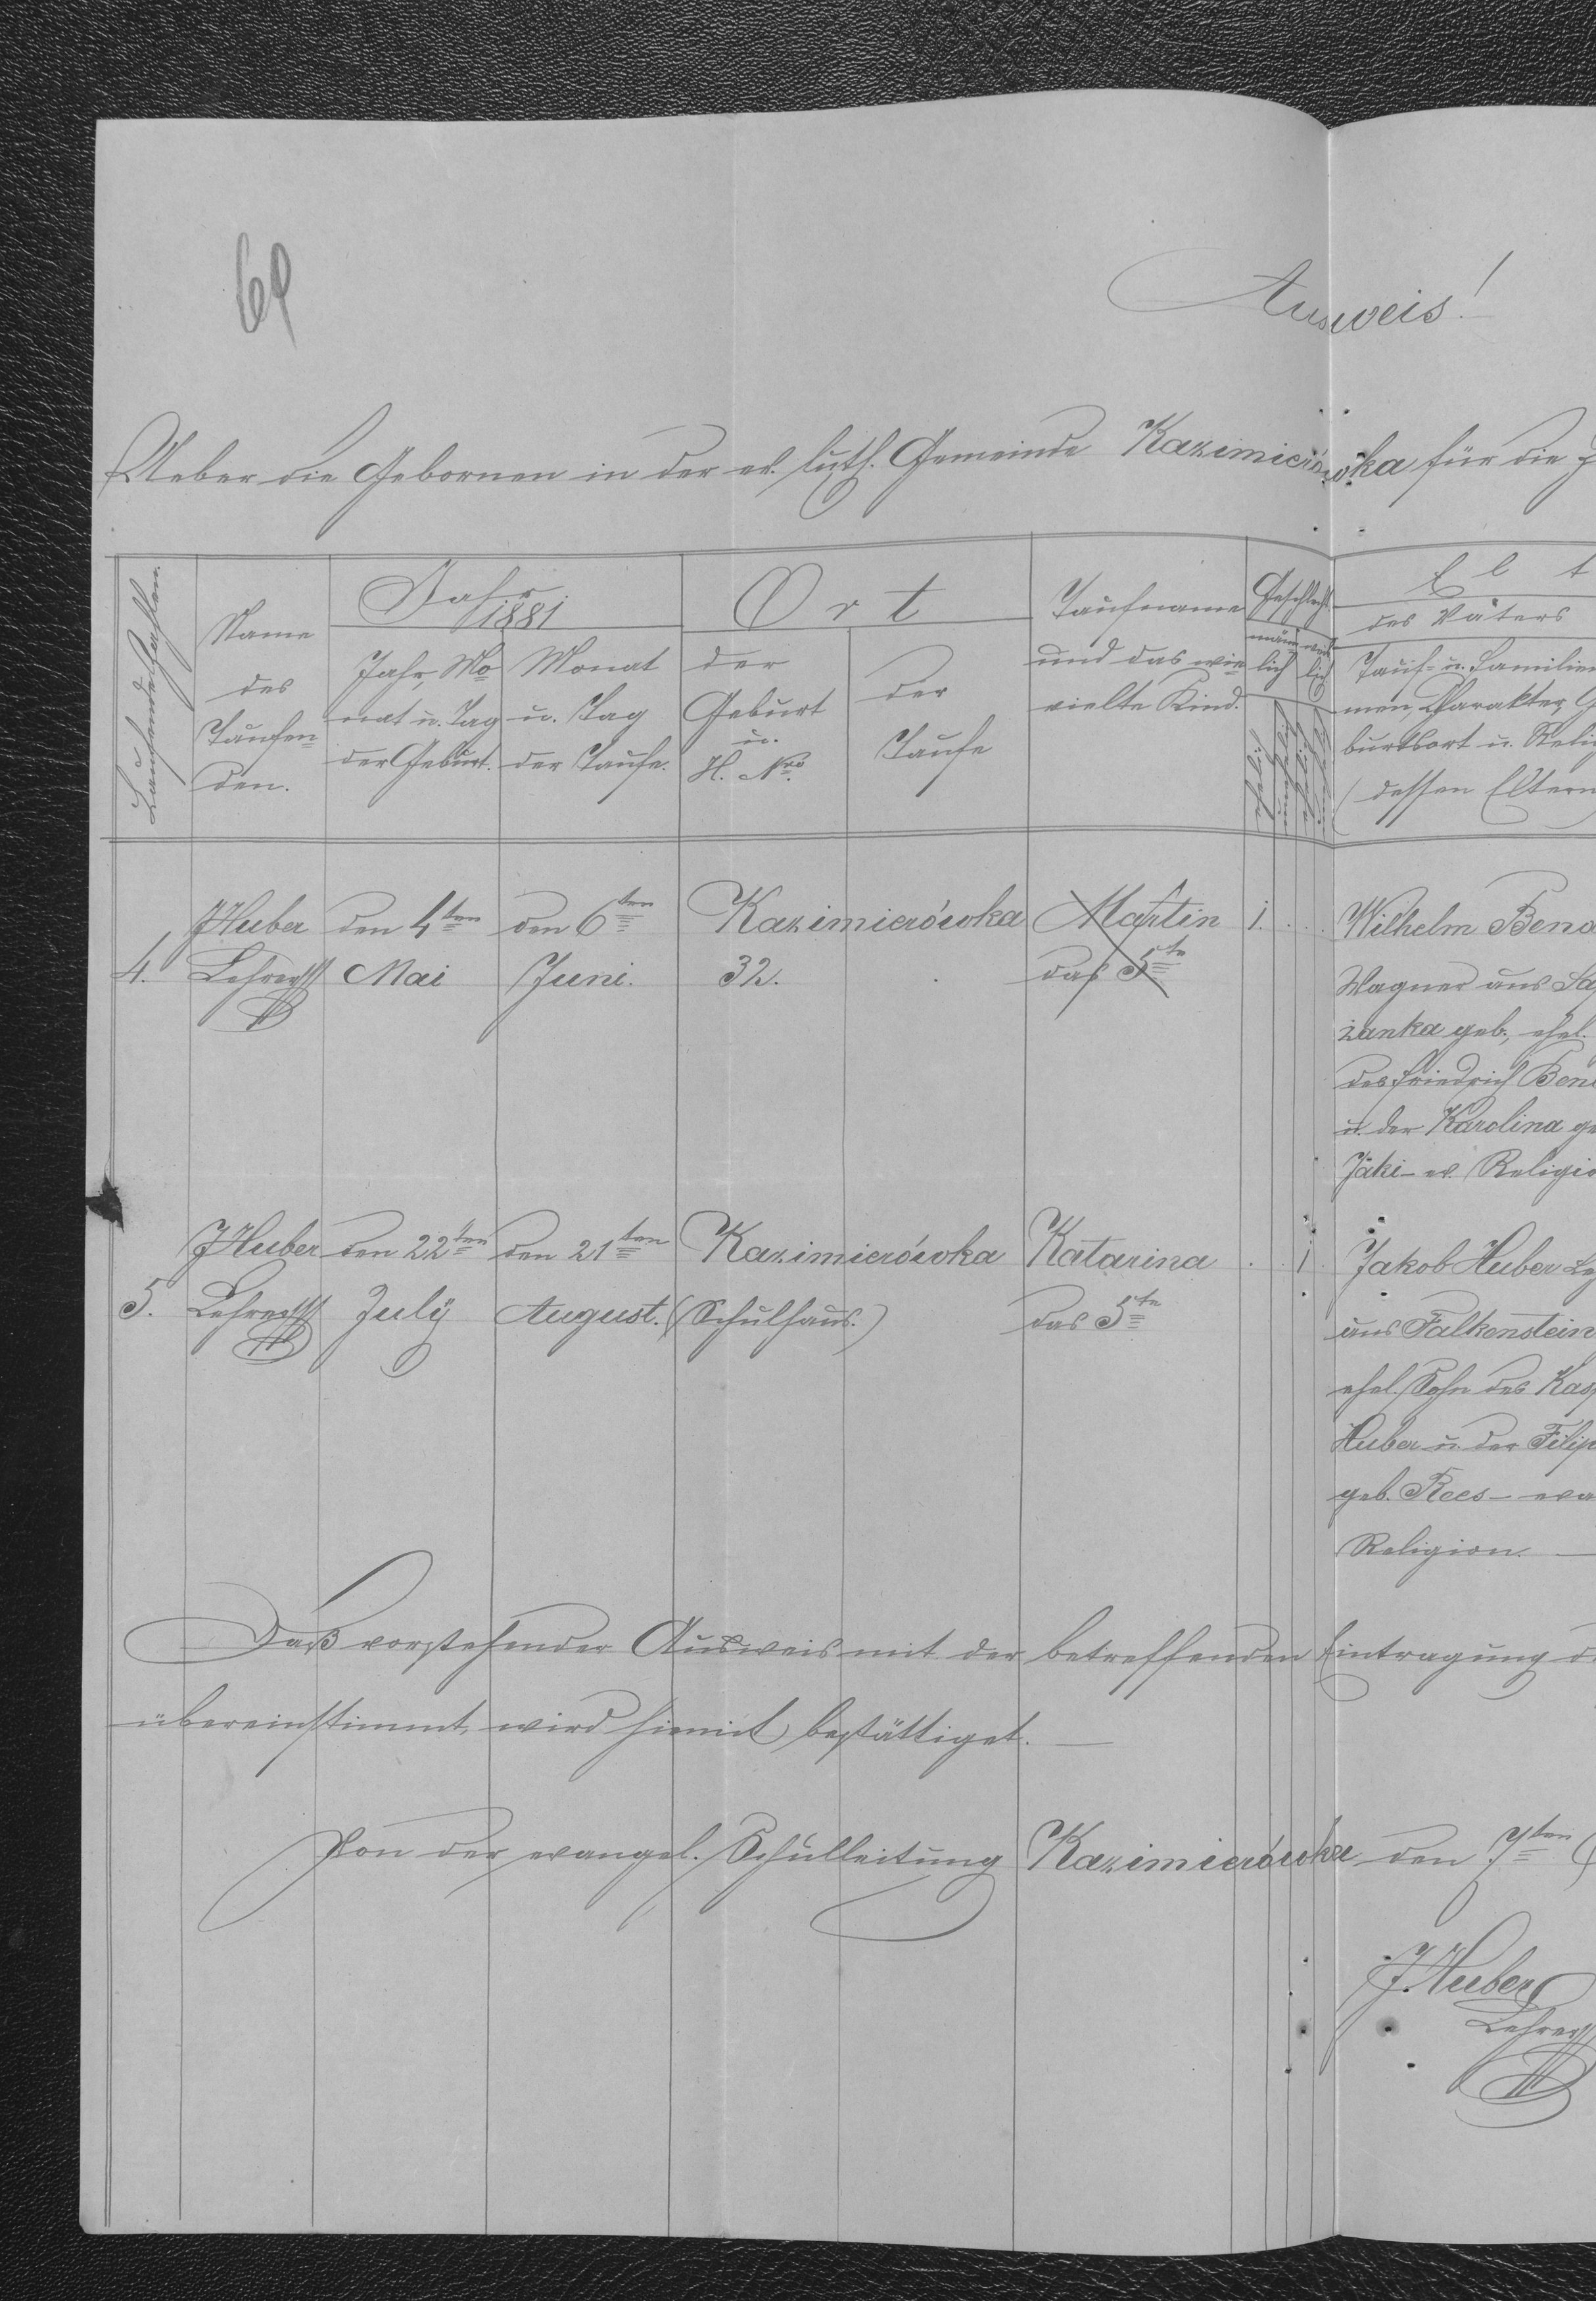 69
Ausweis!
Ueber die Gebornen in der ev. luth. Gemeinde Kazimierówka für die
Laufende Zahlen.
Name des Taufenden.
Jahr 1881
Jahr, Monat u. Tag der Geburt.
Monat u. Tag der Taufe.
Ort
der Geburt u. H. Nro
der Taufe
Taufname und das wievielte Kind.
Geschlecht.
männlich
weiblich
ehelich
unehelich
ehelich
unehelich
Elt
des Vaters
Tauf- u. Familien
men, Charakter, G
burtsort u. Relig
(dessen Eltern
4.
JHuber Lehrer
den 4ten Mai
den 6ten Juni.
Kazimierówka
32.
Martin
das 5te
1.
Wilhelm Bend
Wagner aus Sa
żanka geb., ehel.
des Friedrich Ben
u. der Karolina ge
Jäki - ev. Religio
5.
JHuber Lehrer
den 22ten July
den 21ten August.
Kazimierówka
(Schulhaus.)
Katarina
das 5te
1
Jakob Huber Le
aus Falkenstein
ehel. Sohn des Kasp
Huber u. der Filip
geb. Rees - eva
Religion. —
Daß vorstehender Ausweis mit der betreffenden Eintragung d
übereinstimmt wird hiemit bestättiget. —
Von der evangel. Schulleitung Kazimierówka den 7ten
J. Huber
Lehrer